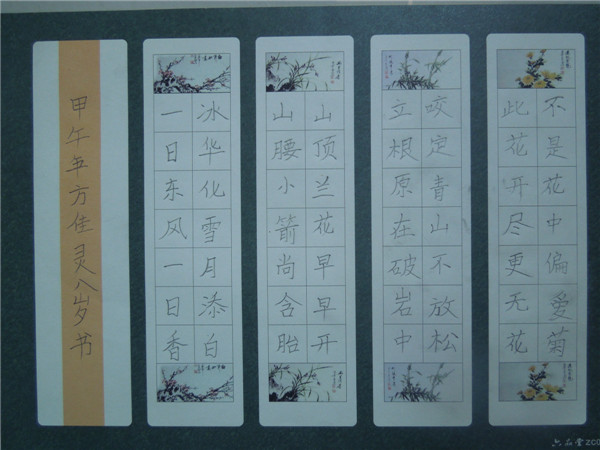 不是花中偏爱菊
此花开尽更无花
咬定青山不放松
立根原在破岩中
山顶兰花早早开
山腰小箭尚含胎
冰华化雪月添白
一日东风一日香
甲午年方佳灵八岁书